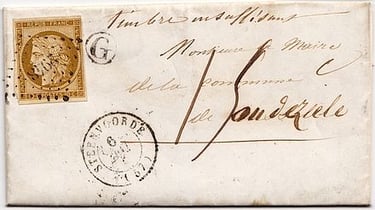 REPUB. FRANC.
timbre insuffisant
G
Monsieur le Maire
de la commune
de Oudezeele
15
STEENVOORDE
6
(57)